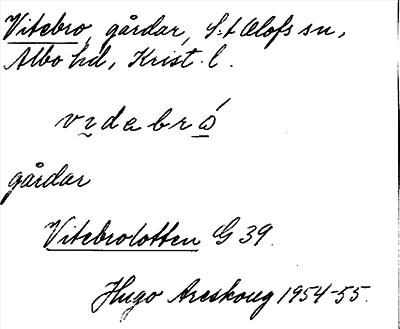 Vitebro, gårdar, S:t Olofs sn,
Albo hd, Krist. l.
vıdebró
gårdar
Vitebrolotten G 39.
Hugo Areskoug 1954-55.